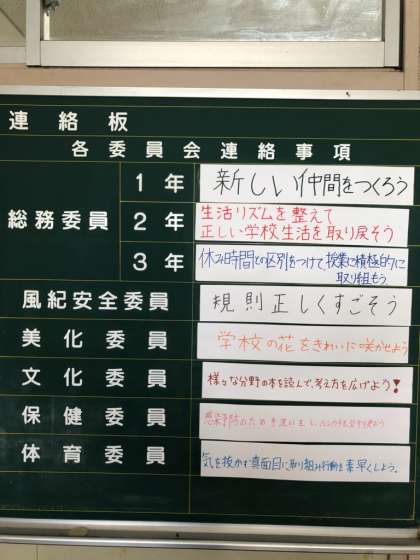 連絡板
各委員会連絡事項
総務委員
1年
新しい仲間をつくろう
2年
生活リズムを整えて
正しい学校生活を取り戻そう
3年
休み時間との区別をつけて授業に積極的に
取り組もう
風紀安全委員
規則正しくすごそう
美化委員
学校の花をきれいに咲かせよう
文化委員
様々な分野の本を読んで、考え方を広げよう!
保健委員
感染予防のため手洗いをし
体育委員
気を抜かず真面目に取り組み行動を素早くしよう。